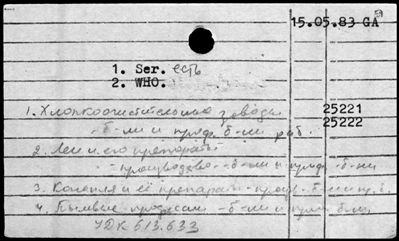 15.05.83 GA
1. Ser. есть
2. WHO.
1. Хлопкоочистительные заводы 25221
- б-ни и проф. б-ни раб. 25222
2. Лен и его препараты
- производство - б-ни и проф. б-ни
3. Конопля и её препараты - произв. - б-ни и
4. Пылевые - б-ни и проф. б-ни
УДК 613.633